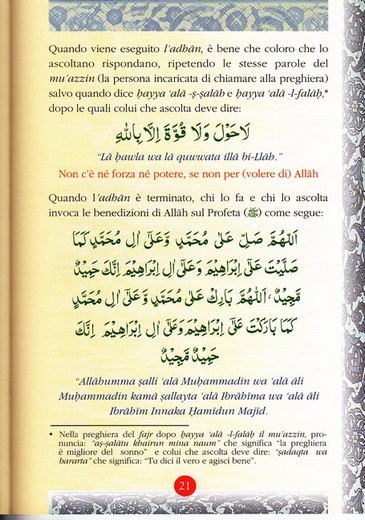 Quando viene eseguito l'adhân, è bene che coloro che lo
ascoltano rispondano, ripetendo le stesse parole del
mu'azzin (la persona incaricata di chiamare alla preghiera)
salvo quando dice ḥayya 'alâ -ṣ-ṣalâh e ḥayya 'alâ -l-falâḥ,*
dopo le quali colui che ascolta deve dire:
لَاحَوْلَ وَلَا قُوَّةَ اِلَّا بِاللّٰهِ
"Lâ ḥawla wa lâ quwwata illâ bi-Llâh."
Non c'è né forza né potere, se non per (volere di) Allâh
Quando l'adhân è terminato, chi lo fa e chi lo ascolta
invoca le benedizioni di Allâh sul Profeta (ﷺ) come segue:
اَللّٰهُمَّ صَلِّ عَلٰى مُحَمَّدٍ وَعَلٰى اٰلِ مُحَمَّدٍ كَمَا
صَلَّيْتَ عَلٰى اِبْرَاهِيْمَ وَعَلٰى اٰلِ اِبْرَاهِيْمَ اِنَّكَ حَمِيْدٌ
مَّجِيْدٌ، اَللّٰهُمَّ بَارِكْ عَلٰى مُحَمَّدٍ وَّعَلٰى اٰلِ مُحَمَّدٍ
كَمَا بَارَكْتَ عَلٰى اِبْرَاهِيْمَ وَعَلٰى اٰلِ اِبْرَاهِيْمَ اِنَّكَ
حَمِيْدٌ مَّجِيْدٌ
"Allâhumma ṣalli 'alâ Muḥammadin wa 'alâ âli
Muḥammadin kamâ ṣallayta 'alâ Ibrâhîma wa 'alâ âli
Ibrâhîm Innaka Ḥamîdun Majîd.
* Nella preghiera del fajr dopo ḥayya 'alâ -l-falâḥ il mu'azzin, pro-
nuncia: "aṣ-ṣalâtu khairun mina naum" che significa "la preghiera
è migliore del sonno" e colui che ascolta deve dire: "ṣadaqta wa
bararta" che significa: "Tu dici il vero e agisci bene".
21